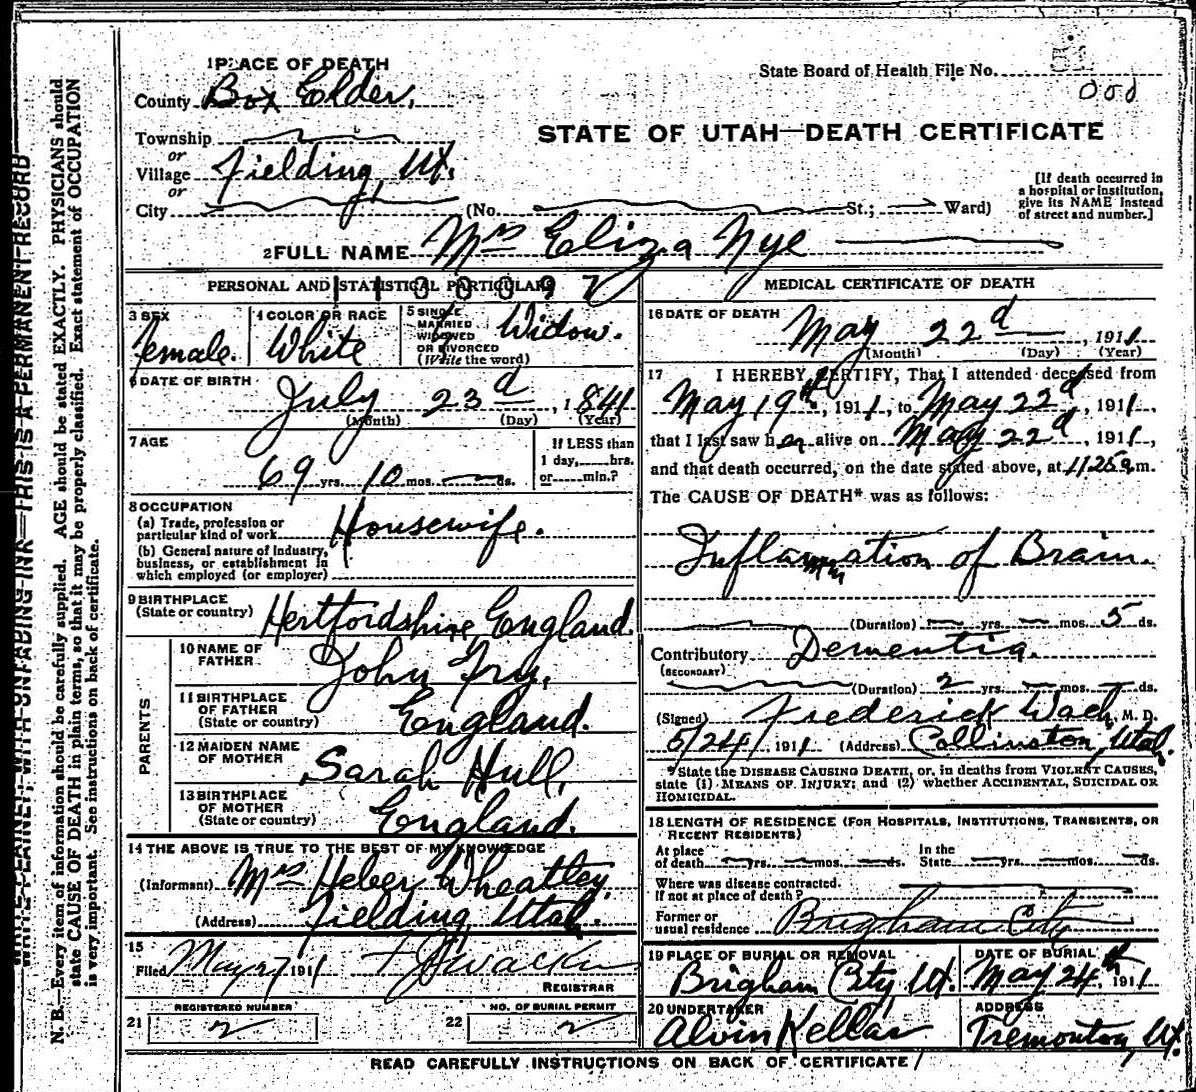 1 PLACE OF DEATH
County Box Elder.
State Board of Health File No.
Township
or
Village Fielding, Ut.
or
City (No. St.; Ward)
STATE OF UTAH—DEATH CERTIFICATE
[If death occurred in
a hospital or institution,
give its NAME instead
of street and number.]
2 FULL NAME Mrs Eliza Nye
PERSONAL AND STATISTICAL PARTICULARS
3 SEX
female.
4 COLOR OR RACE
White
5 SINGLE
MARRIED
WIDOWED
OR DIVORCED
(Write the word)
Widow.
6 DATE OF BIRTH
July 23d, 1841
(Month) (Day) (Year)
7 AGE
69 yrs. 10 mos. — ds.
If LESS than
1 day, hrs.
or min.?
8 OCCUPATION
(a) Trade, profession or
particular kind of work Housewife.
(b) General nature of industry,
business, or establishment in
which employed (or employer)
9 BIRTHPLACE
(State or country) Hertfordshire, England.
PARENTS
10 NAME OF
FATHER John Fry.
11 BIRTHPLACE
OF FATHER
(State or country) England.
12 MAIDEN NAME
OF MOTHER Sarah Hull,
13 BIRTHPLACE
OF MOTHER
(State or country) England.
14 THE ABOVE IS TRUE TO THE BEST OF MY KNOWLEDGE
(Informant) Mrs Heber Wheatley,
(Address) Fielding, Utah.
15
Filed May 27 1911
REGISTRAR
REGISTERED NUMBER
21 2
NO. OF BURIAL PERMIT
22 2
MEDICAL CERTIFICATE OF DEATH
16 DATE OF DEATH
May 22d, 1911
(Month) (Day) (Year)
17 I HEREBY CERTIFY, That I attended deceased from
May 19th, 1911, to May 22d, 1911,
that I last saw her alive on May 22d, 1911,
and that death occurred, on the date stated above, at 11.25 a.m.
The CAUSE OF DEATH* was as follows:
Inflammation of Brain.
(Duration) — yrs. — mos. 5 ds.
Contributory Dementia.
(SECONDARY)
(Duration) 2 yrs. — mos. — ds.
(Signed) Frederick Wach, M. D.
5/24/ 1911 (Address) Collinston, Utah.
*State the DISEASE CAUSING DEATH, or, in deaths from VIOLENT CAUSES,
state (1) MEANS OF INJURY; and (2) whether ACCIDENTAL, SUICIDAL OR
HOMICIDAL.
18 LENGTH OF RESIDENCE (FOR HOSPITALS, INSTITUTIONS, TRANSIENTS, OR
RECENT RESIDENTS)
At place
of death — yrs. — mos. — ds. In the
State — yrs. — mos. — ds.
Where was disease contracted.
If not at place of death?
Former or
usual residence Brigham City
19 PLACE OF BURIAL OR REMOVAL
Brigham City, Ut.
DATE OF BURIAL
May 24th, 1911
20 UNDERTAKER
Alvin Kellar
ADDRESS
Tremonton, Ut.
READ CAREFULLY INSTRUCTIONS ON BACK OF CERTIFICATE
WRITE PLAINLY, WITH UNFADING INK—THIS IS A PERMANENT RECORD
N. B.—Every item of information should be carefully supplied. AGE should be stated EXACTLY. PHYSICIANS should
state CAUSE OF DEATH in plain terms, so that it may be properly classified. Exact statement of OCCUPATION
is very important. See instructions on back of certificate.